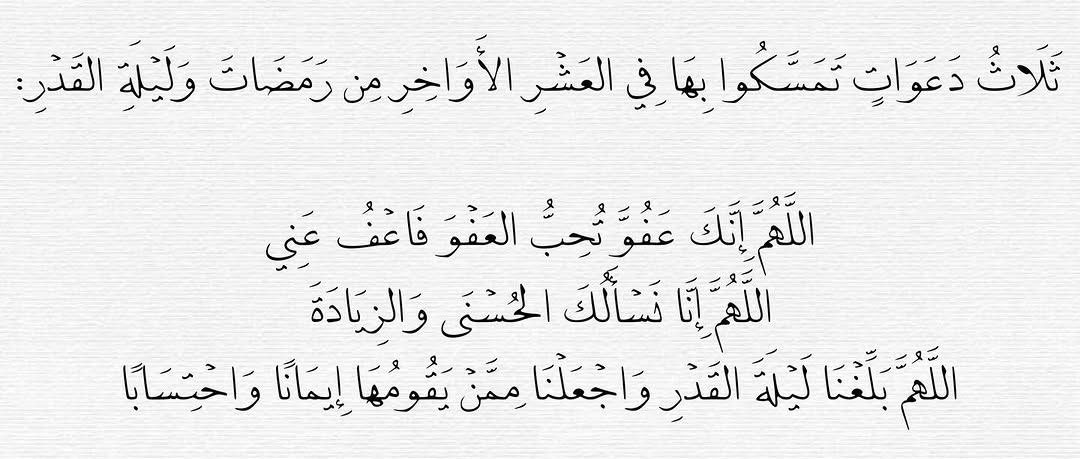 ثَلَاثُ دَعَوَاتٍ تَمَسَّكُوا بِهَا فِي العَشْرِ الأَوَاخِرِ مِن رَمَضَاتَ وَلَيْلَةِ القَدْرِ:
اللَّهُمَّ إِنَّكَ عَفُوَّ تُحِبُّ العَفْوَ فَاعْفُ عَنِي
اللَّهُمَّ إِنَّا نَسْأَلُكَ الحُسْنَى وَالزِيَادَةَ
اللَّهُمَّ بَلِّغْنَا لَيْلَةَ القَدْرِ وَاجْعَلْنَا مِمَّنْ يَقُومُهَا إِيمَانًا وَاحْتِسَابًا